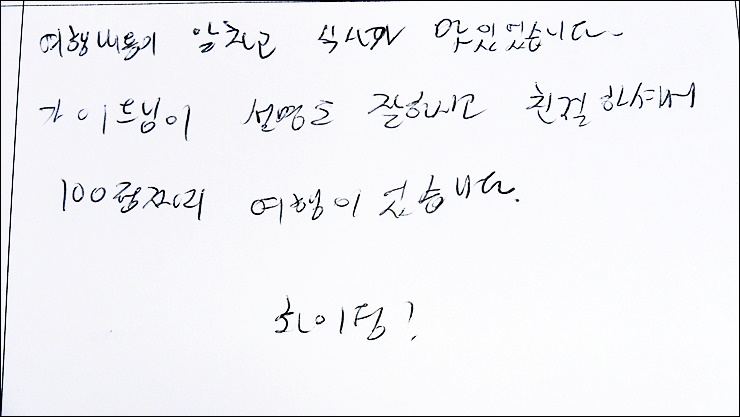 여행내용이 알차고 식사가 맛있었습니다.
가이드님이 설명도 잘하시고 친절하셔서
100점짜리 여행이었습니다.
화이팅!